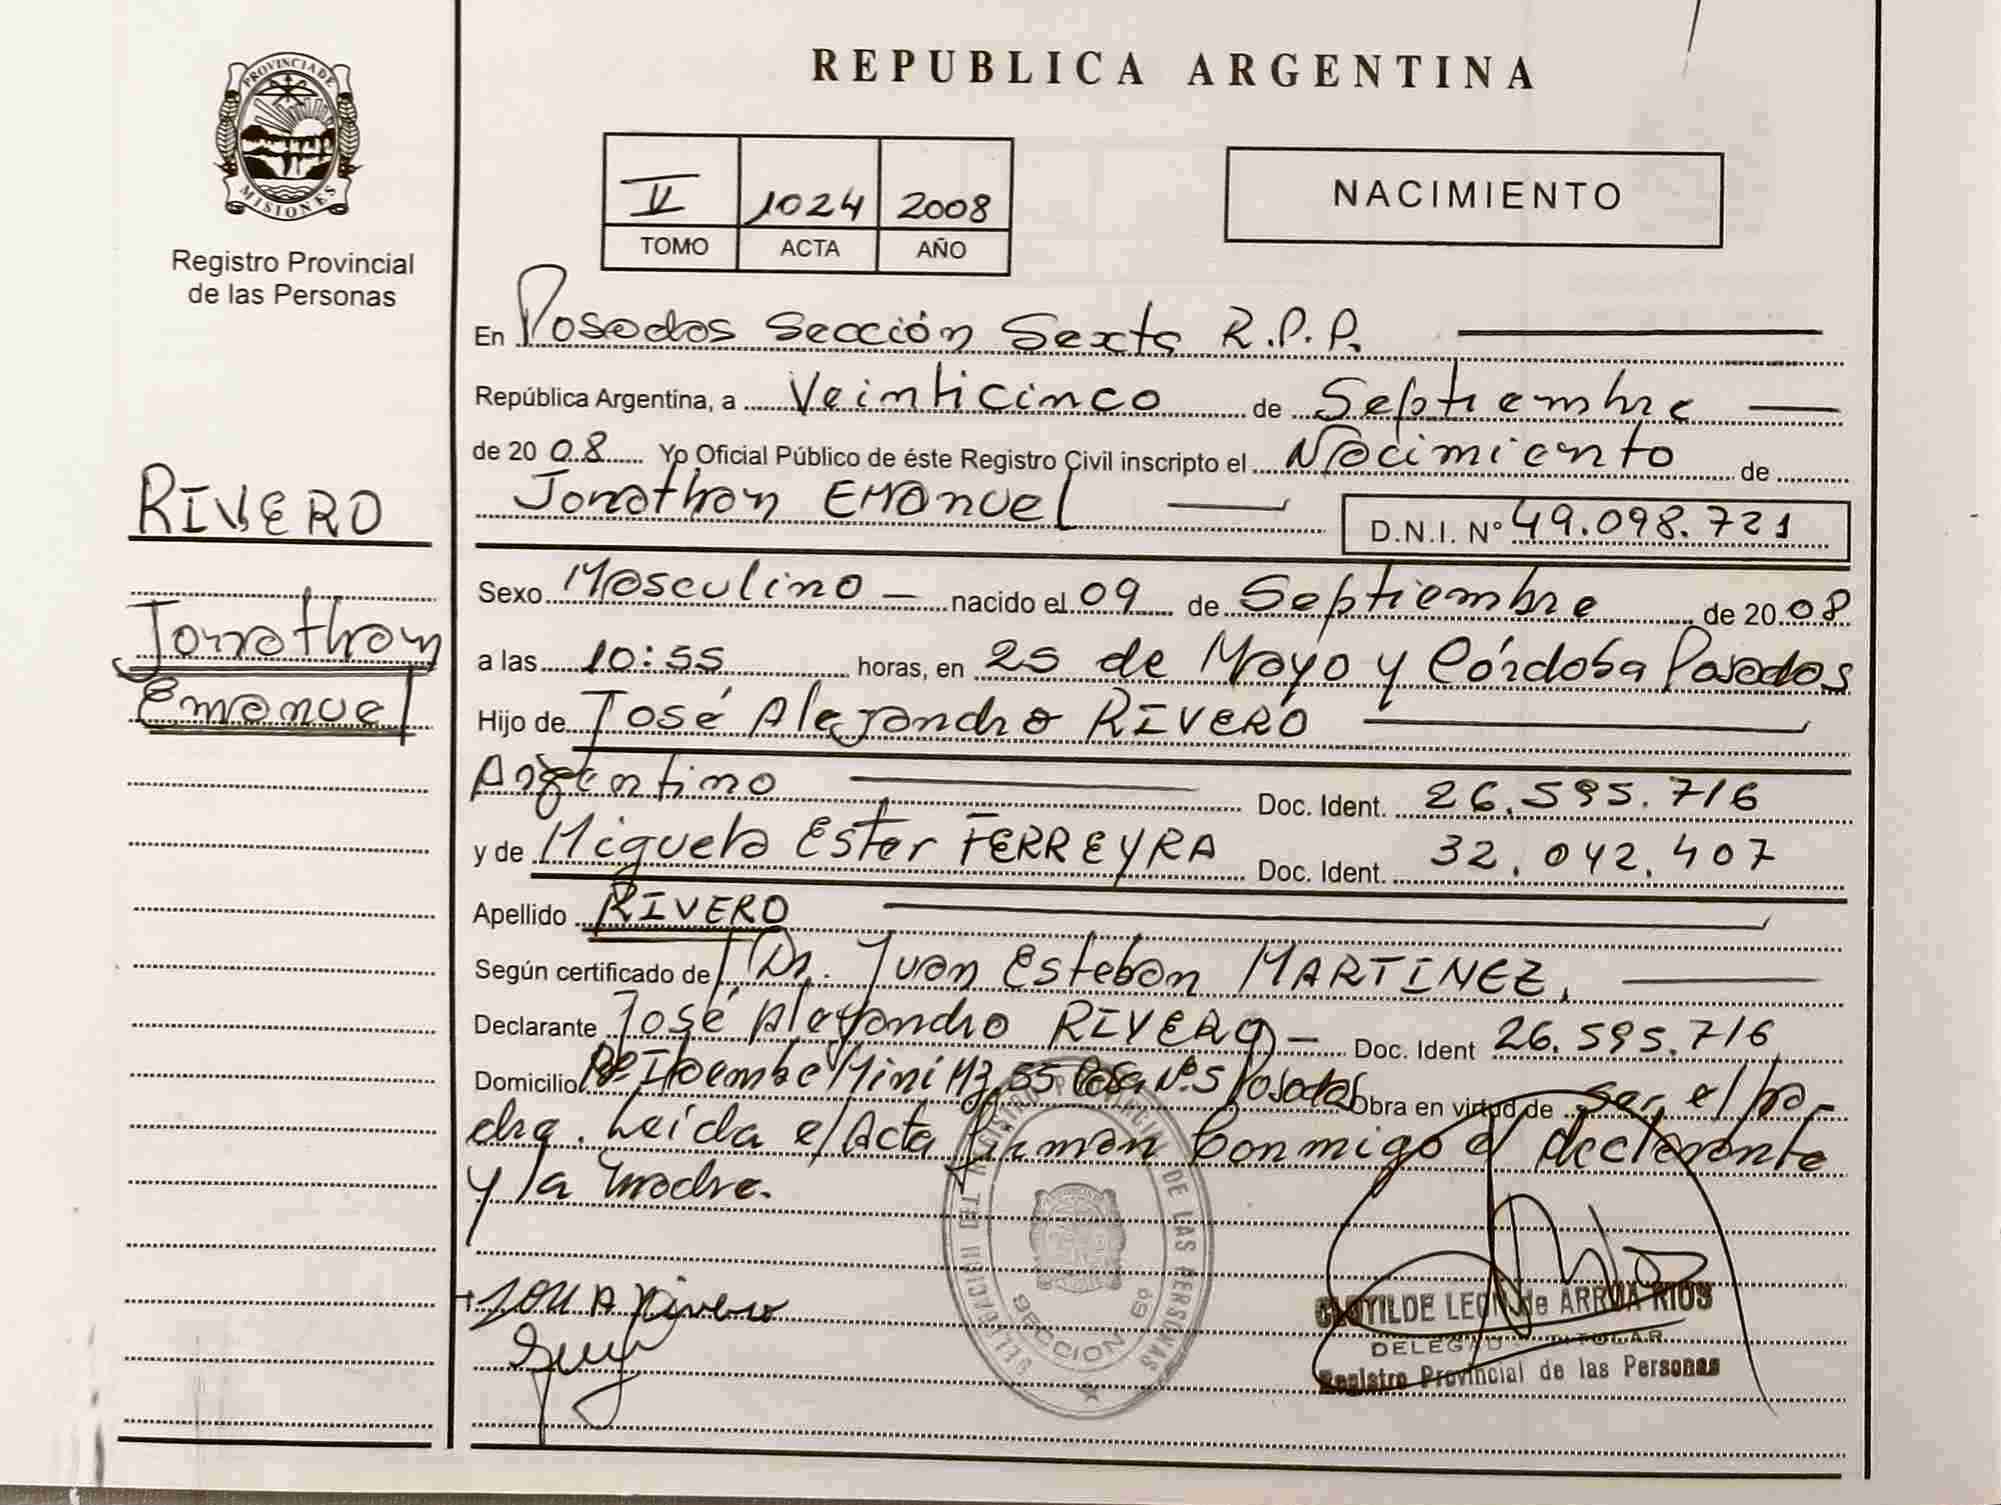 PROVINCIA DE
MISIONES
Registro Provincial
de las Personas
RIVERO
Jonathan
Emanuel
REPUBLICA ARGENTINA
II 1024 2008
TOMO ACTA AÑO
NACIMIENTO
En Posadas Sección Sexta R.P.P.
República Argentina, a Veinticinco de Septiembre
de 20 08 Yo Oficial Público de éste Registro Civil inscripto el Nacimiento de
Jonathan Emanuel D.N.I. N° 49.098.721
Sexo Masculino nacido el 09 de Septiembre de 20 08
a las 10:55 horas, en 25 de Mayo y Córdoba Posadas
Hijo de José Alejandro RIVERO
Argentino Doc. Ident. 26.595.716
y de Miguela Ester FERREYRA Doc. Ident. 32.042.407
Apellido RIVERO
Según certificado de Dr. Juan Esteban MARTINEZ.
Declarante José Alejandro RIVERO Doc. Ident 26.595.716
Domicilio Bº Itaembe Mini Mz 55 Casa Nº 5 Posadas Obra en virtud de ser el pa-
dre. Leída el Acta firman Conmigo el declarante
y la madre.
José A Rivero
REGISTRO PROVINCIAL DE LAS PERSONAS
SECCION 6º
CLOTILDE LEON de ARRUA RIOS
DELEGADO TITULAR
Registro Provincial de las Personas